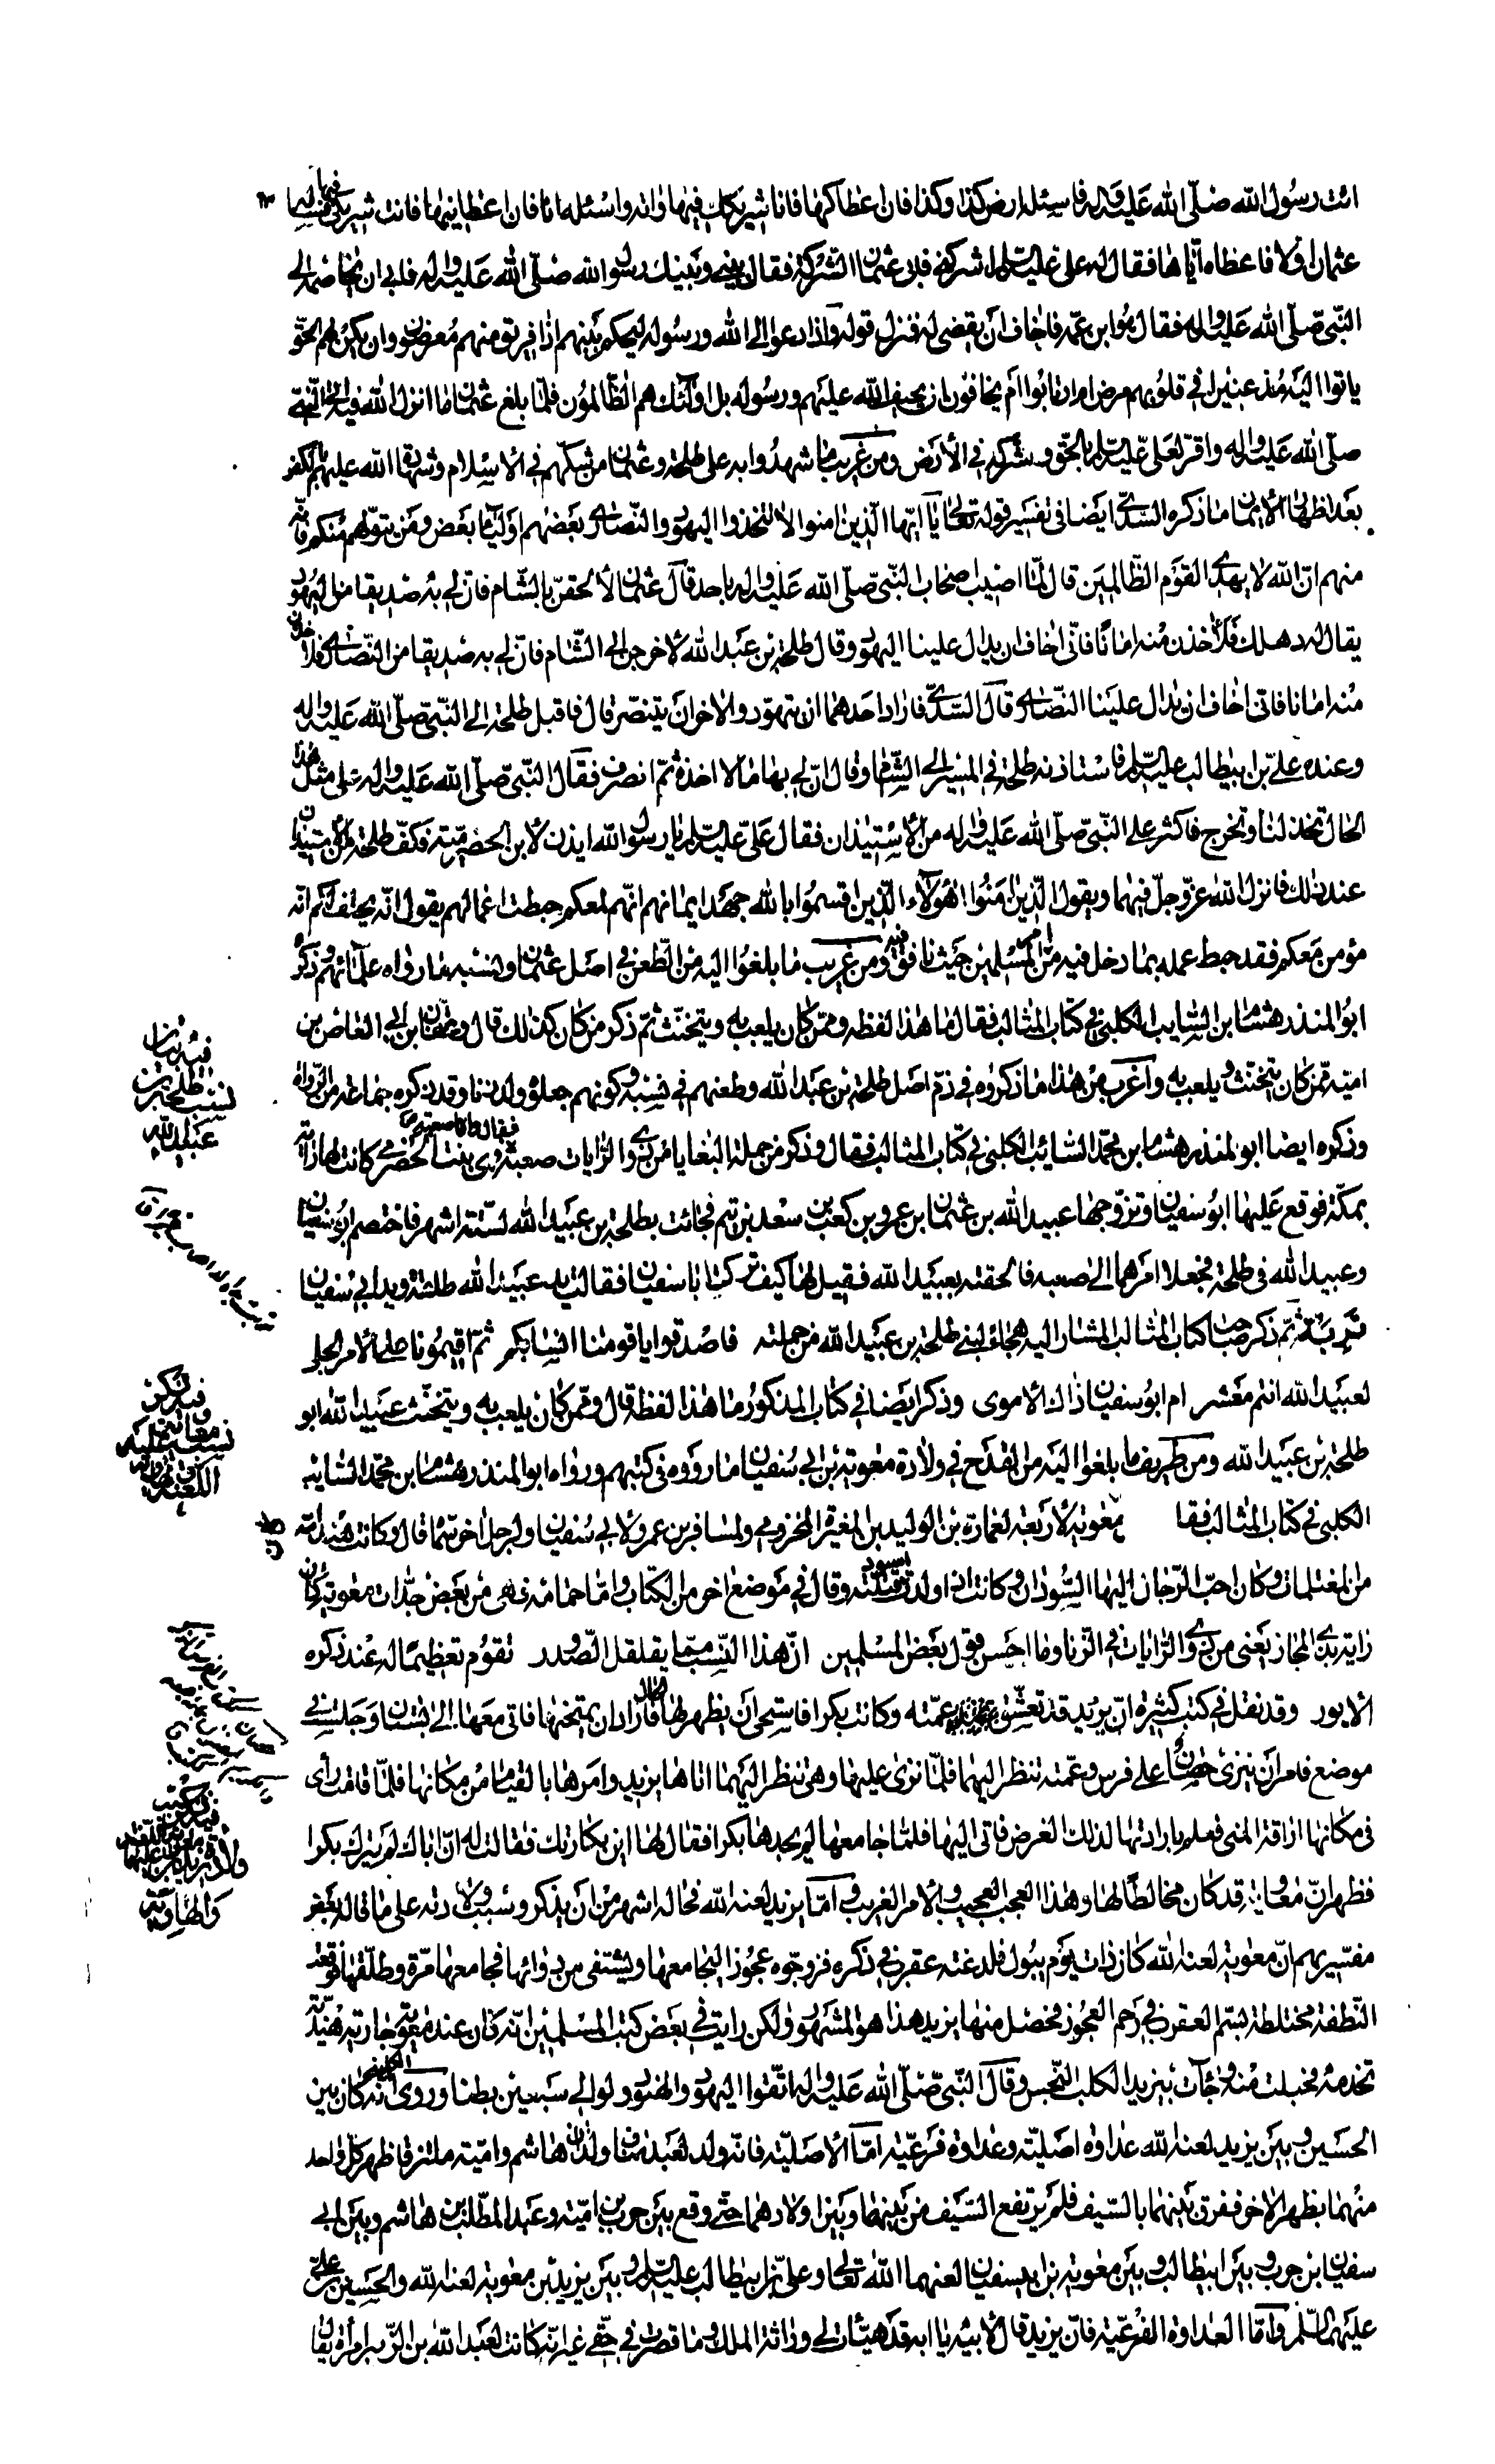 ائت رسول الله صلّى الله عليه وآله فاسئله ارض كذا وكذا فان اعطاكها فانا شريكك فيها واته واسئله انا فان اعطانيها فانت شريكي فيها فسئلها
عثمان اولا فاعطاه ايّاها فقال له على عليه السلم اشركني فابى عثمان الشركة فقال بيني وبينك رسول الله صلّى الله عليه واله فابى ان يخاصمه الى
النّبيّ صلّى الله عليه واله فقال هو ابن عمّه فاخاف ان يقضى له فنزل قوله واذا دعوا الى الله ورسوله ليحكم بينهم اذا فريق منهم معرضون وان يكن لهم الحقّ
ياتوا اليه مذعنين افي قلوبهم مرض ام ارتابوا ام يخافون ان يحيف الله عليهم ورسوله بل اولئك هم الظّالمون فلمّا بلغ عثمان ما انزل الله فيه اتى النّبيّ
صلّى الله عليه واله واقرّ لعلىّ عليه السلم بالحقّ وشركه في الأرض ومن غريب ما شهدوا به على طلحة وعثمان من شكّهم في الاسلام وشهادة الله عليهم بالكفر
بعد اظهار الأيمان ما ذكره السّدّي ايضا في تفسير قوله تعالى يا ايّها الّذين امنوا لا تتّخذوا اليهود والنّصارى بعضهم اولياء بعض ومن يتولّهم منكم فانّه
منهم انّ الله لا يهدي القوم الظّالمين قال لمّا اصيب اصحاب النّبيّ صلّى الله عليه واله باحد قال عثمان لألحقنّ بالشّام فانّ لي به صديقا من اليهود
يقال له دهلك فلاخذن منه امانا فانّي اخاف ان يدال علينا اليهود وقال طلحة بن عبد الله لاخرجن الى الشّام فانّ لي به صديقا من النّصارى فلاخذن
منه امانا فاني اخاف ان يدال علينا النّصارى قال السّدّي فاراد احدهما ان يتهوّد والاخر ان يتنصّر قال فاقبل طلحة الى النّبيّ صلّى الله عليه واله
وعنده عليّ بن ابيطالب عليه السلم فاستاذنه طلحة في المسير الى الشّام وقال انّ لي بها مالا اخذه ثمّ انصرف فقال النّبيّ صلّى الله عليه واله على مثل هذا
الحال تخذلنا وتخرج فاكثر على النّبيّ صلّى الله عليه واله من الأستيذان فقال علىّ عليه السلم يا رسول الله ايذن لابن الحضرميّة فكفّ طلحة عن الأستيذان
عند ذلك فانزل الله عزّ وجلّ فيهما ويقول الّذين امنوا اهؤلاء الّذين اقسموا بالله جهد ايمانهم انّهم لمعكم حبطت اعمالهم يقول انّه يحلف لكم انّه
مؤمن معكم فقد حبط عمله بما دخل فيه من امر المسلمين حيث نافق فيه ومن غريب ما بلغوا اليه من الطّعن في اصل عثمان ونسبه ما رواه علمائهم وذكره
ابو المنذر هشام ابن السّايب الكلبي في كتاب المثالب فقال ما هذا لفظه وممّن كان يلعب به ويتخنّث ثمّ ذكر من كان كذلك قال وعفّان ابن ابي العاص بن
اميّة ممّن كان يتخنّث ويلعب به واغرب من هذا ما ذكروه في ذمّ اصل طلحة بن عبد الله وطعنهم في نسبه وكونهم جعلوه ولد زنا وقد ذكره جماعة من الرّواة
وذكره ايضا ابو المنذر هشام بن محمّد السّائب الكلبي في كتاب المثالب فقال وذكر من جملة البغايا من ذوي الرّايات صعبة فقال وامّا صعبة فهي بنت الحضرمي كانت لها راية
بمكّة فوقع عليها ابو سفيان وتزوّجها عبيد الله بن عثمان ابن عمرو بن كعب بن سعد بن تيم فجائت بطلحة بن عبيد الله لستّة اشهر فاختصم ابو سفيان
وعبيد الله في طلحة فجعلا امرهما الى صعبة فالحقته بعبيد الله فقيل لها كيف تركت ابا سفيان فقالت يد عبيد الله طلقة ويد ابي سفيان
تربة ثمّ ذكر صاحب كتاب المثالب المشار اليه هجاء لبني طلحة بن عبيد الله من جملته فاصدقوا يا قومنا انسابكم ثمّ اقيمونا على الأمر الجلي
لعبيد الله انتم معشر ام ابو سفيان ذاك الأموي وذكر ايضا في كتاب المذكور ما هذا لفظه قال وممّن كان يلعب به ويتخنّث عبيد الله ابو
طلحة بن عبيد الله ومن طريف ما بلغوا اليه من القدح في ولادة معوية بن ابي سفيان ما رووه في كتبهم ورواه ابو المنذر هشام ابن محمّد السّائب
الكلبي في كتاب المثالب فقال معوية لأربعة لعمارة بن الوليد بن المغيرة المخزومي ولمسافر بن عمرو ولابي سفيان ولرجل اخر سمّاه قال وكانت هند امّه
من المغتلمات وكان احبّ الرّجال اليها السّودان وكانت اذا ولدت اسود قتلته وقال في موضع اخر من الكتاب وامّا حمامة فهي من بعض جدّات معوية كان
راية بذي المجاز يعني من ذوي الرّايات في الزنا وما احسن قول بعض المسلمين انّ هذا النّسب ممّا يقلقل الصّدور تقوم تعظيما له عند ذكره
الايور وقد نقل في كتب كثيرة انّ يزيد قد تعشّق عمّته وكانت بكرا فاستحى ان يظهر لها فاراد ان يمتحنها فاتى معها الى بستان وجلس في
موضع فامر ان ينزى حصان على فرس وعمّته تنظر اليهما فلمّا نزى عليها وهي تنظر اليهما اتاها يزيد وامرها بالقيام من مكانها فلمّا قامت رأى
في مكانها اراقة المني فعلم بارادتها لذلك الغرض فاتى اليها فلمّا جامعها لم يجدها بكرا فقال لها اين بكارتك فقالت له انّ اباك لم يترك بكرا
فظهر انّ معاوية قد كان مخالطا لها وهذا العجب العجيب والأمر الغريب وامّا يزيد لعنه الله فحاله اشهر من ان يذكر وسبب ولادته على ما قاله بعض
مفسّريهم انّ معوية لعنه الله كان ذات يوم يبول فلدغته عقرب في ذكره فزوّجوه عجوزا ليجامعها ويشتفى من دائها فجامعها مرّة وطلّقها فوقعت
النّطفة مختلطة بسمّ العقرب في رحم العجوز فحصل منها يزيد هذا هو المشهور ولكن رايت في بعض كتب المسلمين انّه كان عند معوية جارية هنديّة
تخدمه فحبلت منه وجآت بيزيد الكلب النّجس وقال النّبيّ صلّى الله عليه واله اتّقوا اليهود والهنود ولو الى سبعين بطنا وروى الكليني انّه كان بين
الحسين وبين يزيد لعنه الله عداوة اصليّة وعداوة فرعيّة امّا الأصليّة فانّه ولد لعبد مناف ولدان هاشم واميّة ملتزقا ظهر كلّ واحد
منهما بظهر الاخر ففرق بينهما بالسّيف فلم يرتفع السّيف من بينهما وبين اولادهما حتّى وقع بين حرب بن اميّة وعبد المطّلب بن هاشم وبين ابي
سفين ابن حرب وبين ابيطالب وبين معوية بن ابي سفيان لعنهما الله تعالى وعلى بن ابيطالب عليه السلم وبين يزيد بن معوية لعنه الله والحسين بن علي
عليهما السّلم وامّا العداوة الفرعيّة فانّ يزيد قال لأبيه يا ابه قد هيّئت لي وراثة الملك وما قصرت في حقّي غير انّه كانت لعبد الله بن الزّبير امرأة يقال
فيه بيان
نسب طلحة بن
عبيد الله
فيه ذكر
نسب معاوية عليه
اللعنة
فيه ذكر كيفية
ولادة يزيد عليه
والهاوية